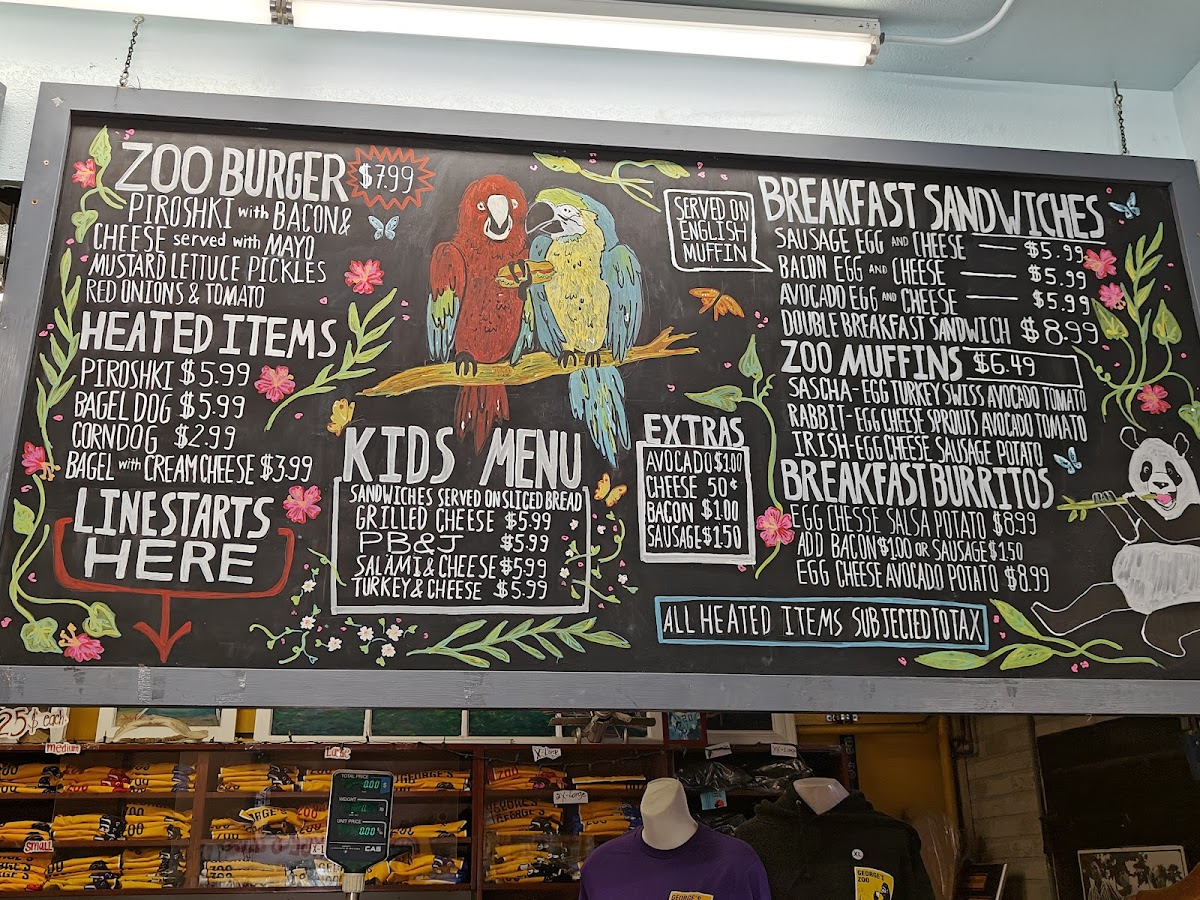 ZOO BURGER $7.99
PIROSHKI with BACON &
CHEESE served with MAYO
MUSTARD LETTUCE PICKLES
RED ONIONS & TOMATO
HEATED ITEMS
PIROSHKI $5.99
BAGEL DOG $5.99
CORNDOG $2.99
BAGEL with CREAM CHEESE $3.99
LINE STARTS
HERE
KIDS MENU
SANDWICHES SERVED ON SLICED BREAD
GRILLED CHEESE $5.99
PB&J $5.99
SALAMI & CHEESE $5.99
TURKEY & CHEESE $5.99
EXTRAS
AVOCADO $1.00
CHEESE 50¢
BACON $1.00
SAUSAGE $1.50
SERVED ON
ENGLISH
MUFFIN
BREAKFAST SANDWICHES
SAUSAGE EGG AND CHEESE — $5.99
BACON EGG AND CHEESE — $5.99
AVOCADO EGG AND CHEESE — $5.99
DOUBLE BREAKFAST SANDWICH $8.99
ZOO MUFFINS $6.49
SASCHA - EGG TURKEY SWISS AVOCADO TOMATO
RABBIT - EGG CHEESE SPROUTS AVOCADO TOMATO
IRISH - EGG CHEESE SAUSAGE POTATO
BREAKFAST BURRITOS
EGG CHESSE SALSA POTATO $8.99
ADD BACON $1.00 OR SAUSAGE $1.50
EGG CHEESE AVOCADO POTATO $8.99
ALL HEATED ITEMS SUBJECTED TO TAX
25$ each
medium
Large
X-Large
XX-Large
Small
TOTAL PRICE
0.00 $
WEIGHT
UNIT PRICE
0.00
CAS
GEORGE'S
ZOO
XL
GEORGE'S
ZOO